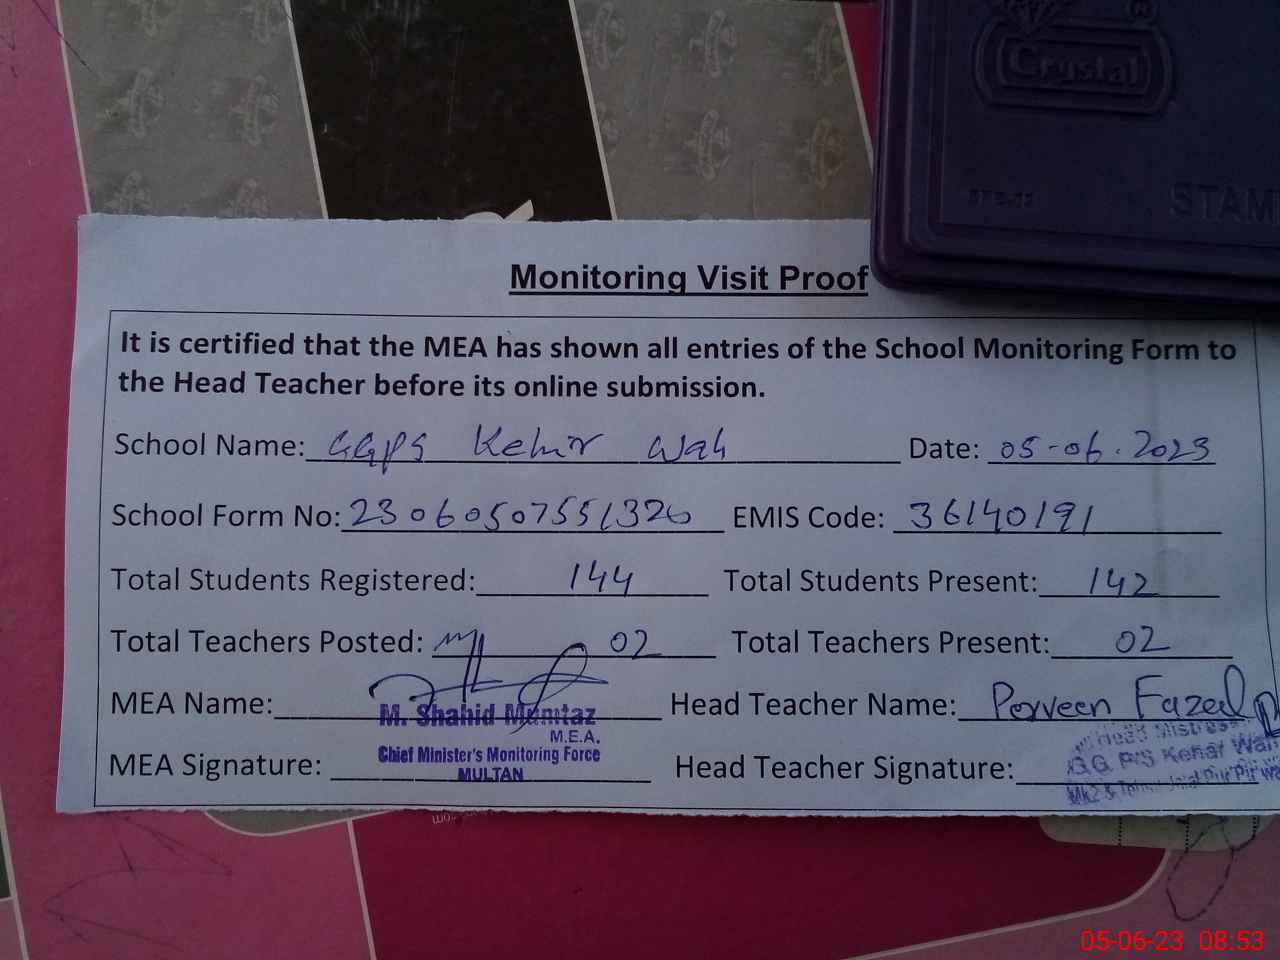 Crystal
STAM
Monitoring Visit Proof
It is certified that the MEA has shown all entries of the School Monitoring Form to
the Head Teacher before its online submission.
School Name: GGPS Kehir Wah Date: 05-06.2023
School Form No: 23060507551326 EMIS Code: 36140191
Total Students Registered: 144 Total Students Present: 142
Total Teachers Posted: 02 Total Teachers Present: 02
MEA Name: Head Teacher Name: Perveen Fazeel
M. Shahid Mumtaz
M.E.A.
Chief Minister's Monitoring Force
MULTAN
MEA Signature: Head Teacher Signature:
Head Mistress
G.G. P/S Kehar Wah
05-06-23 08:53